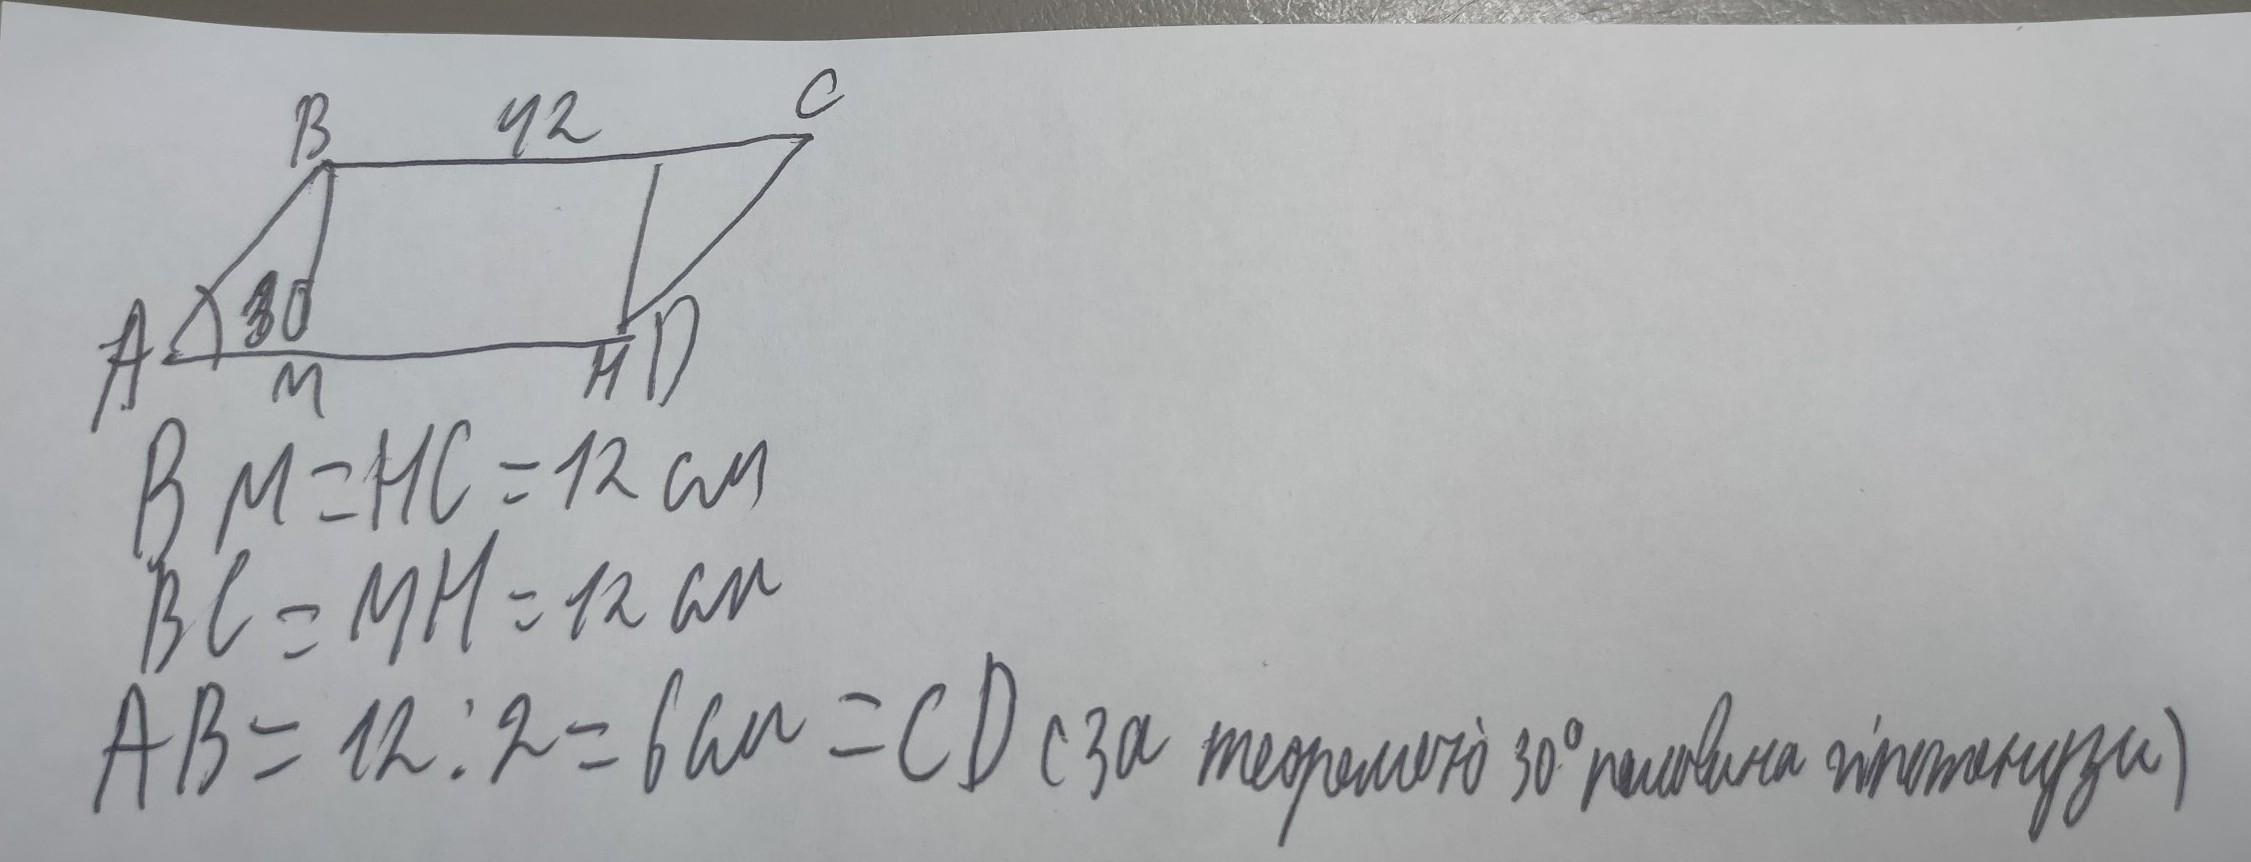 B 12 C
A 30 M H D
BM = HC = 12 см
BC = MH = 12 см
AB = 12 : 2 = 6 см = CD (за теоремою 30° половина гіпотенузи)